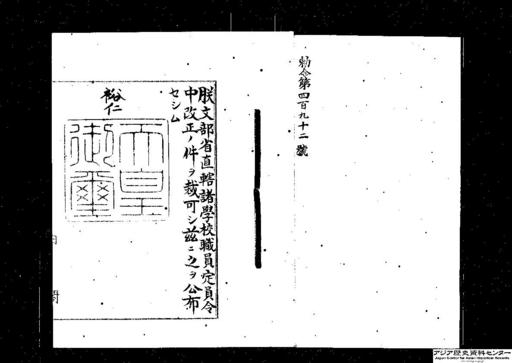 勅令第四百九十二號
朕文部省直轄諸學校職員定員令
中改正ノ件ヲ裁可シ茲ニ之ヲ公布
セシム
裕仁
天皇
御璽
内閣
アジア歴史資料センター
Japan Center for Asian Historical Records